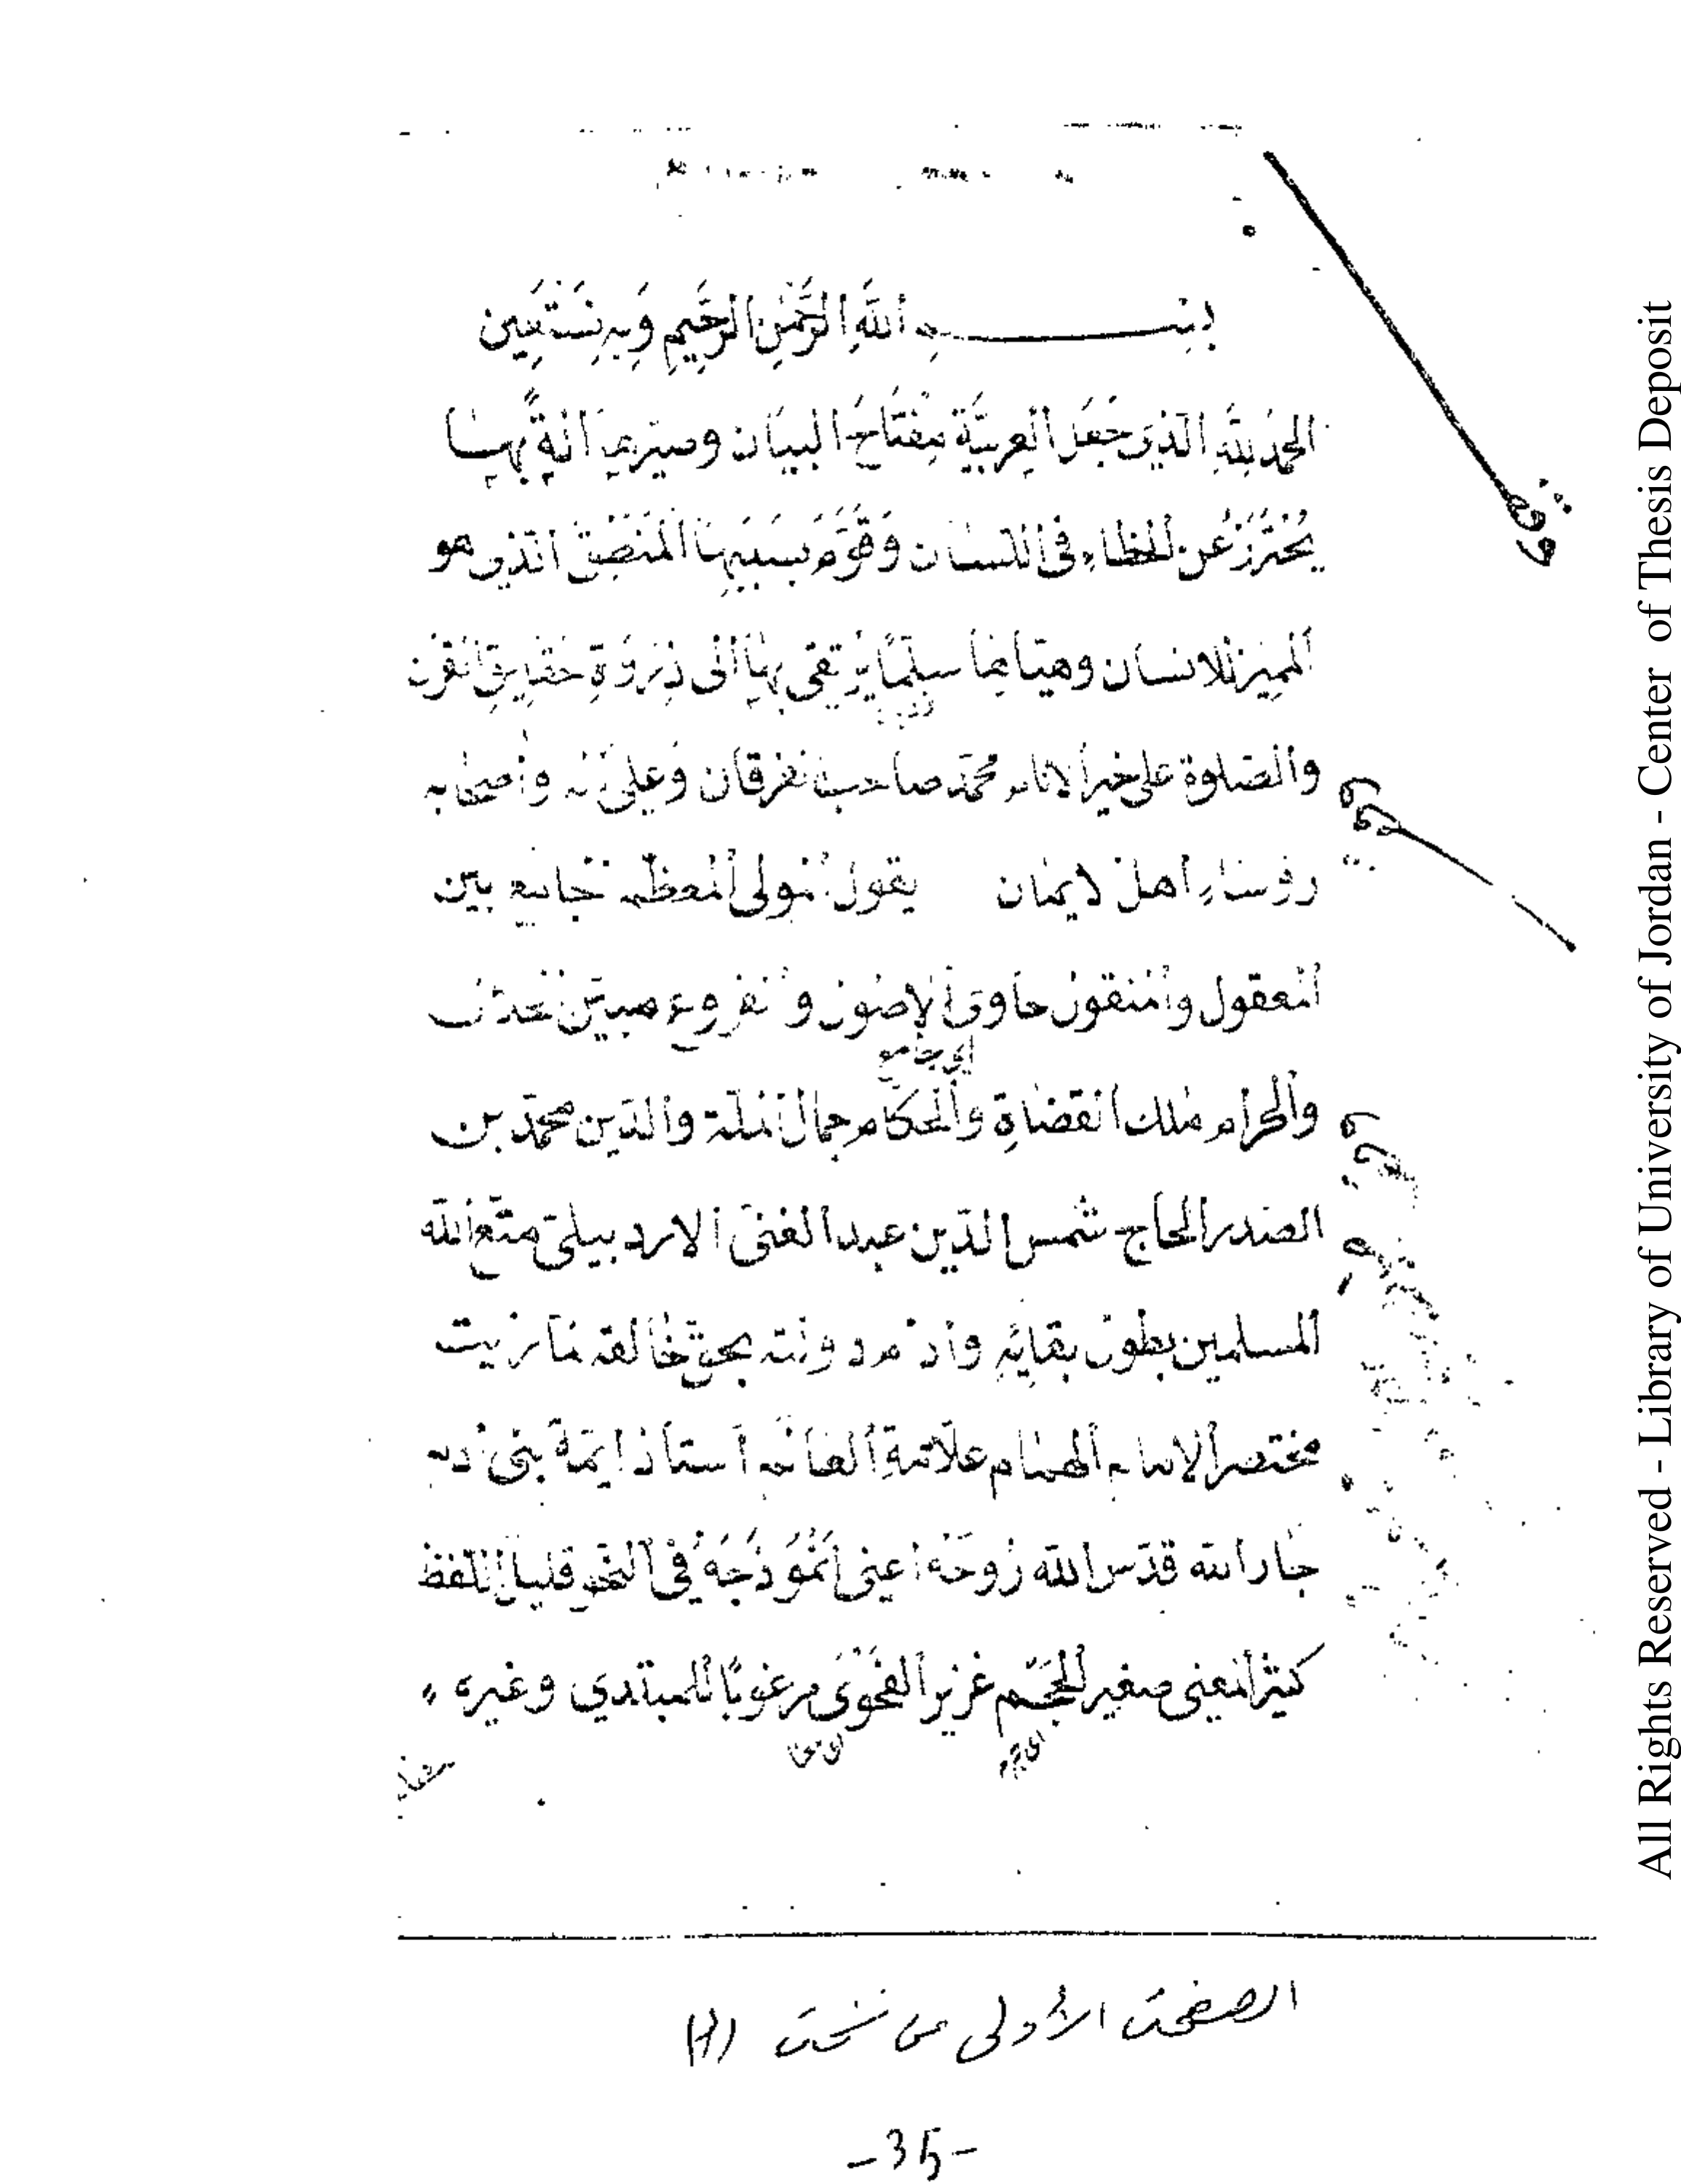 بِسـمِ اللَّهِ الرَّحْمٰنِ الرَّحِيمِ وَبِهِ نَسْتَعِين
الحمدُ لِلَّهِ الَّذِى جَعَلَ العَرَبِيَّةَ مِفْتَاحَ البيَان وصيّرها الةً بهَا
يُحْتَرَزُ عن الخطاءِ فى اللسان وَقَوَّمَ بسَبَبِهَا المَنطِقَ الذى هو
المميز للانسان وهيّا بها سلّمًا يُرتقى بها الى ذِرْوَةِ حقَايِقِ القرن
والصّلوة على خير الانام محمّد صاحب الفرقان وعلى آله وأصحابه
رؤسَاءِ اهل الايمان يقول المولى المعظم الجامع بين
المعقول والمنقول حاوى الاصول والفروع مبيّن الحلال
اى جامع
والحرام ملك القضاةِ والحكّام جمال الملّة والدّين محمّد بن
الصّدر الحاج شمس الدّين عبد الغنى الاردبيلى متّع الله
المسلمين بطول بقائِهِ وادام دولته بحقّ خالقه لما رايت
مختصر الامام الهمام علّامةِ العالم استاذ ايمّة بنى ادم
جار الله قدّس الله رُوحَهُ اعنى أنمُوذَجَهُ فى النّحو قليل اللفظ
كثير المعنى صغير الحَجْم غزير الفَحْوَى مرغوبًا للمبتدي وغيره
الصفحة الأولى من نسخة (أ)
-35-
All Rights Reserved - Library of University of Jordan - Center of Thesis Deposit